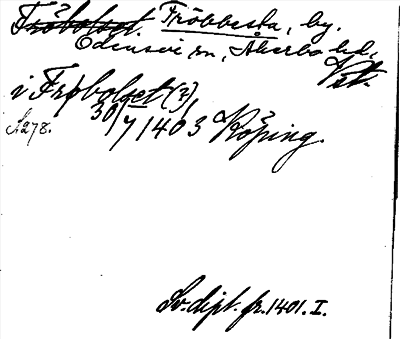 Fröbolset. Fröbbesta, by.
Odensvi sn, Åkerbo hd,
Vstm.
i Frøbolset (?),
30/7 1403 Köping.
Sa 278.
Sv. dipl. fr. 1401. I.